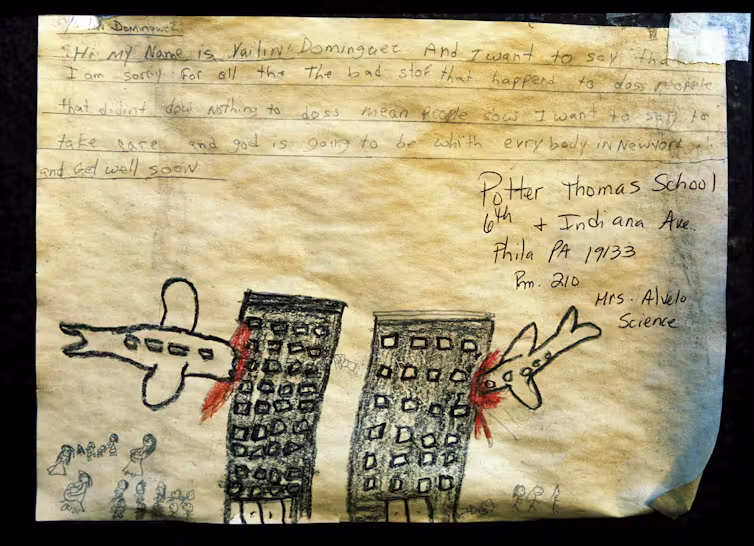 Dominguez
Hi My Name is Yailin Dominguez And I want to say tha
I am sorry for all the The bad stof that happend to doss people
that didint dow nothing to doss mean people sow I want to say to
take care and god is going to be whith evry body in Newyork
and Get well soon
Potter Thomas School
6th + Indiana Ave.
Phila PA 19133
Rm. 210
Mrs. Alvelo
Science